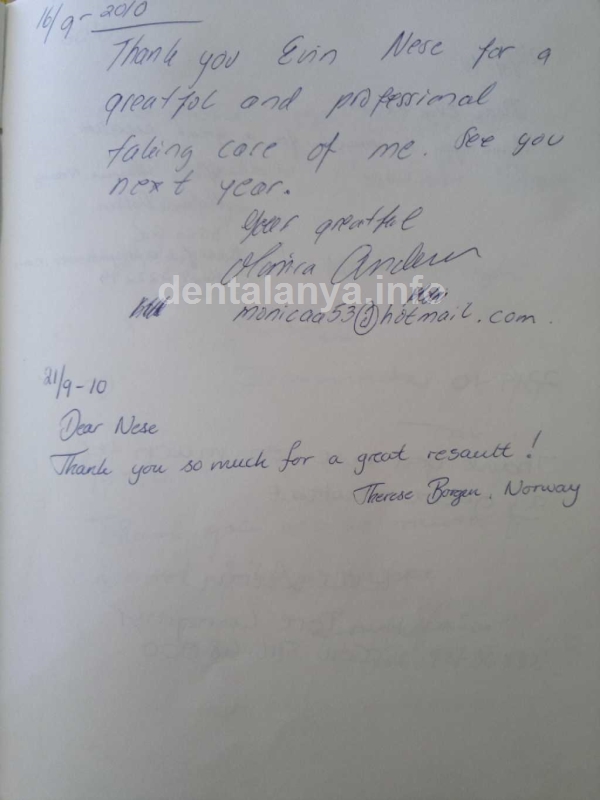 16/9-2010
Thank you Evin Nese for a
greatful and professional
taking care of me. See you
next year.
Your greatful
Monica
dentalanya.info
monicaa53@hotmail.com.
21/9-10
Dear Nese
Thank you so much for a great resault!
Therese Borgen, Norway